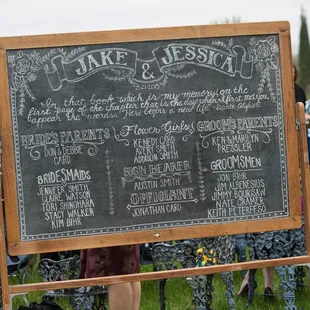 JAKE & JESSICA
In that book which is my memory on the
first page of the chapter that is the day when I first met you,
appear the words, Here begins a new life -Dante Alighieri
BRIDE'S PARENTS
DON & DEBBIE
CARD
BRIDESMAIDS
JENNIFER SMITH
CLAIRE WATSON
TORI SHINOHARA
STACY WALKER
KIM BIHR
Flower Girls
KENEDY CARD
AVERY
ADDISON SMITH
SIGN BEARER
AUSTIN SMITH
OFFICIANT
JONATHAN CARD
GROOM'S PARENTS
KEN & MARILYN
PRESSLER
GROOMSMEN
JON BIHR
JIM ALBENESIUS
JIMMY BORBSAW
NATE CRAMER
KEITH PETERFESO